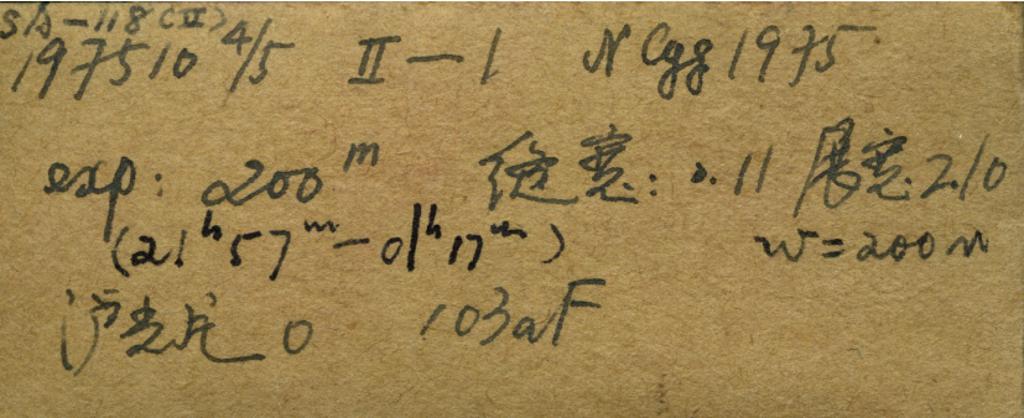 SA-118(II)
197510 4/5 II-1 N Cyg 1975
exp: 200m 缝宽: 0.11 展宽 2.10
(21h57m-01h17m) w=200n
沪光片 0 103aF